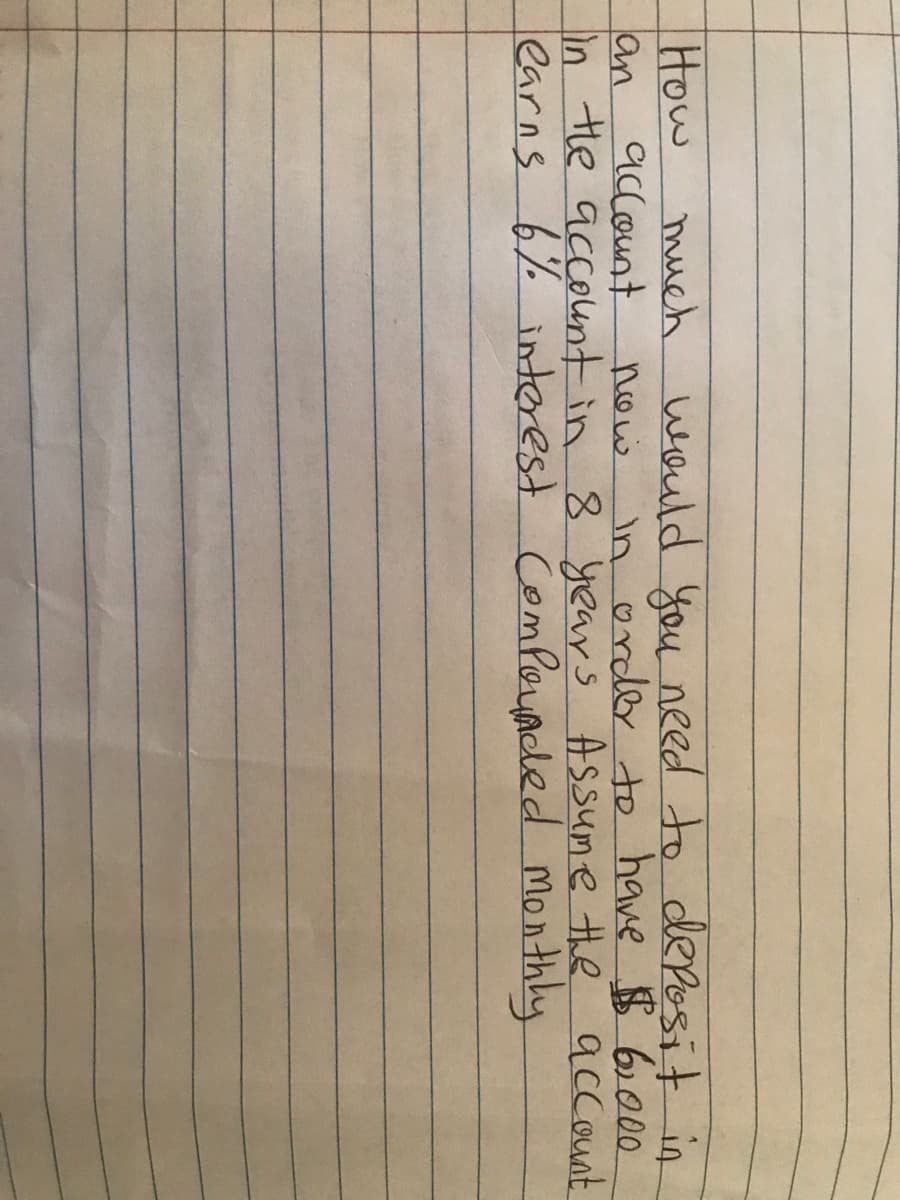 How much would you need to deposit in
an account now in order to have $ 6,000
in the account in 8 years Assume the account
earns 6% interest Compounded monthly